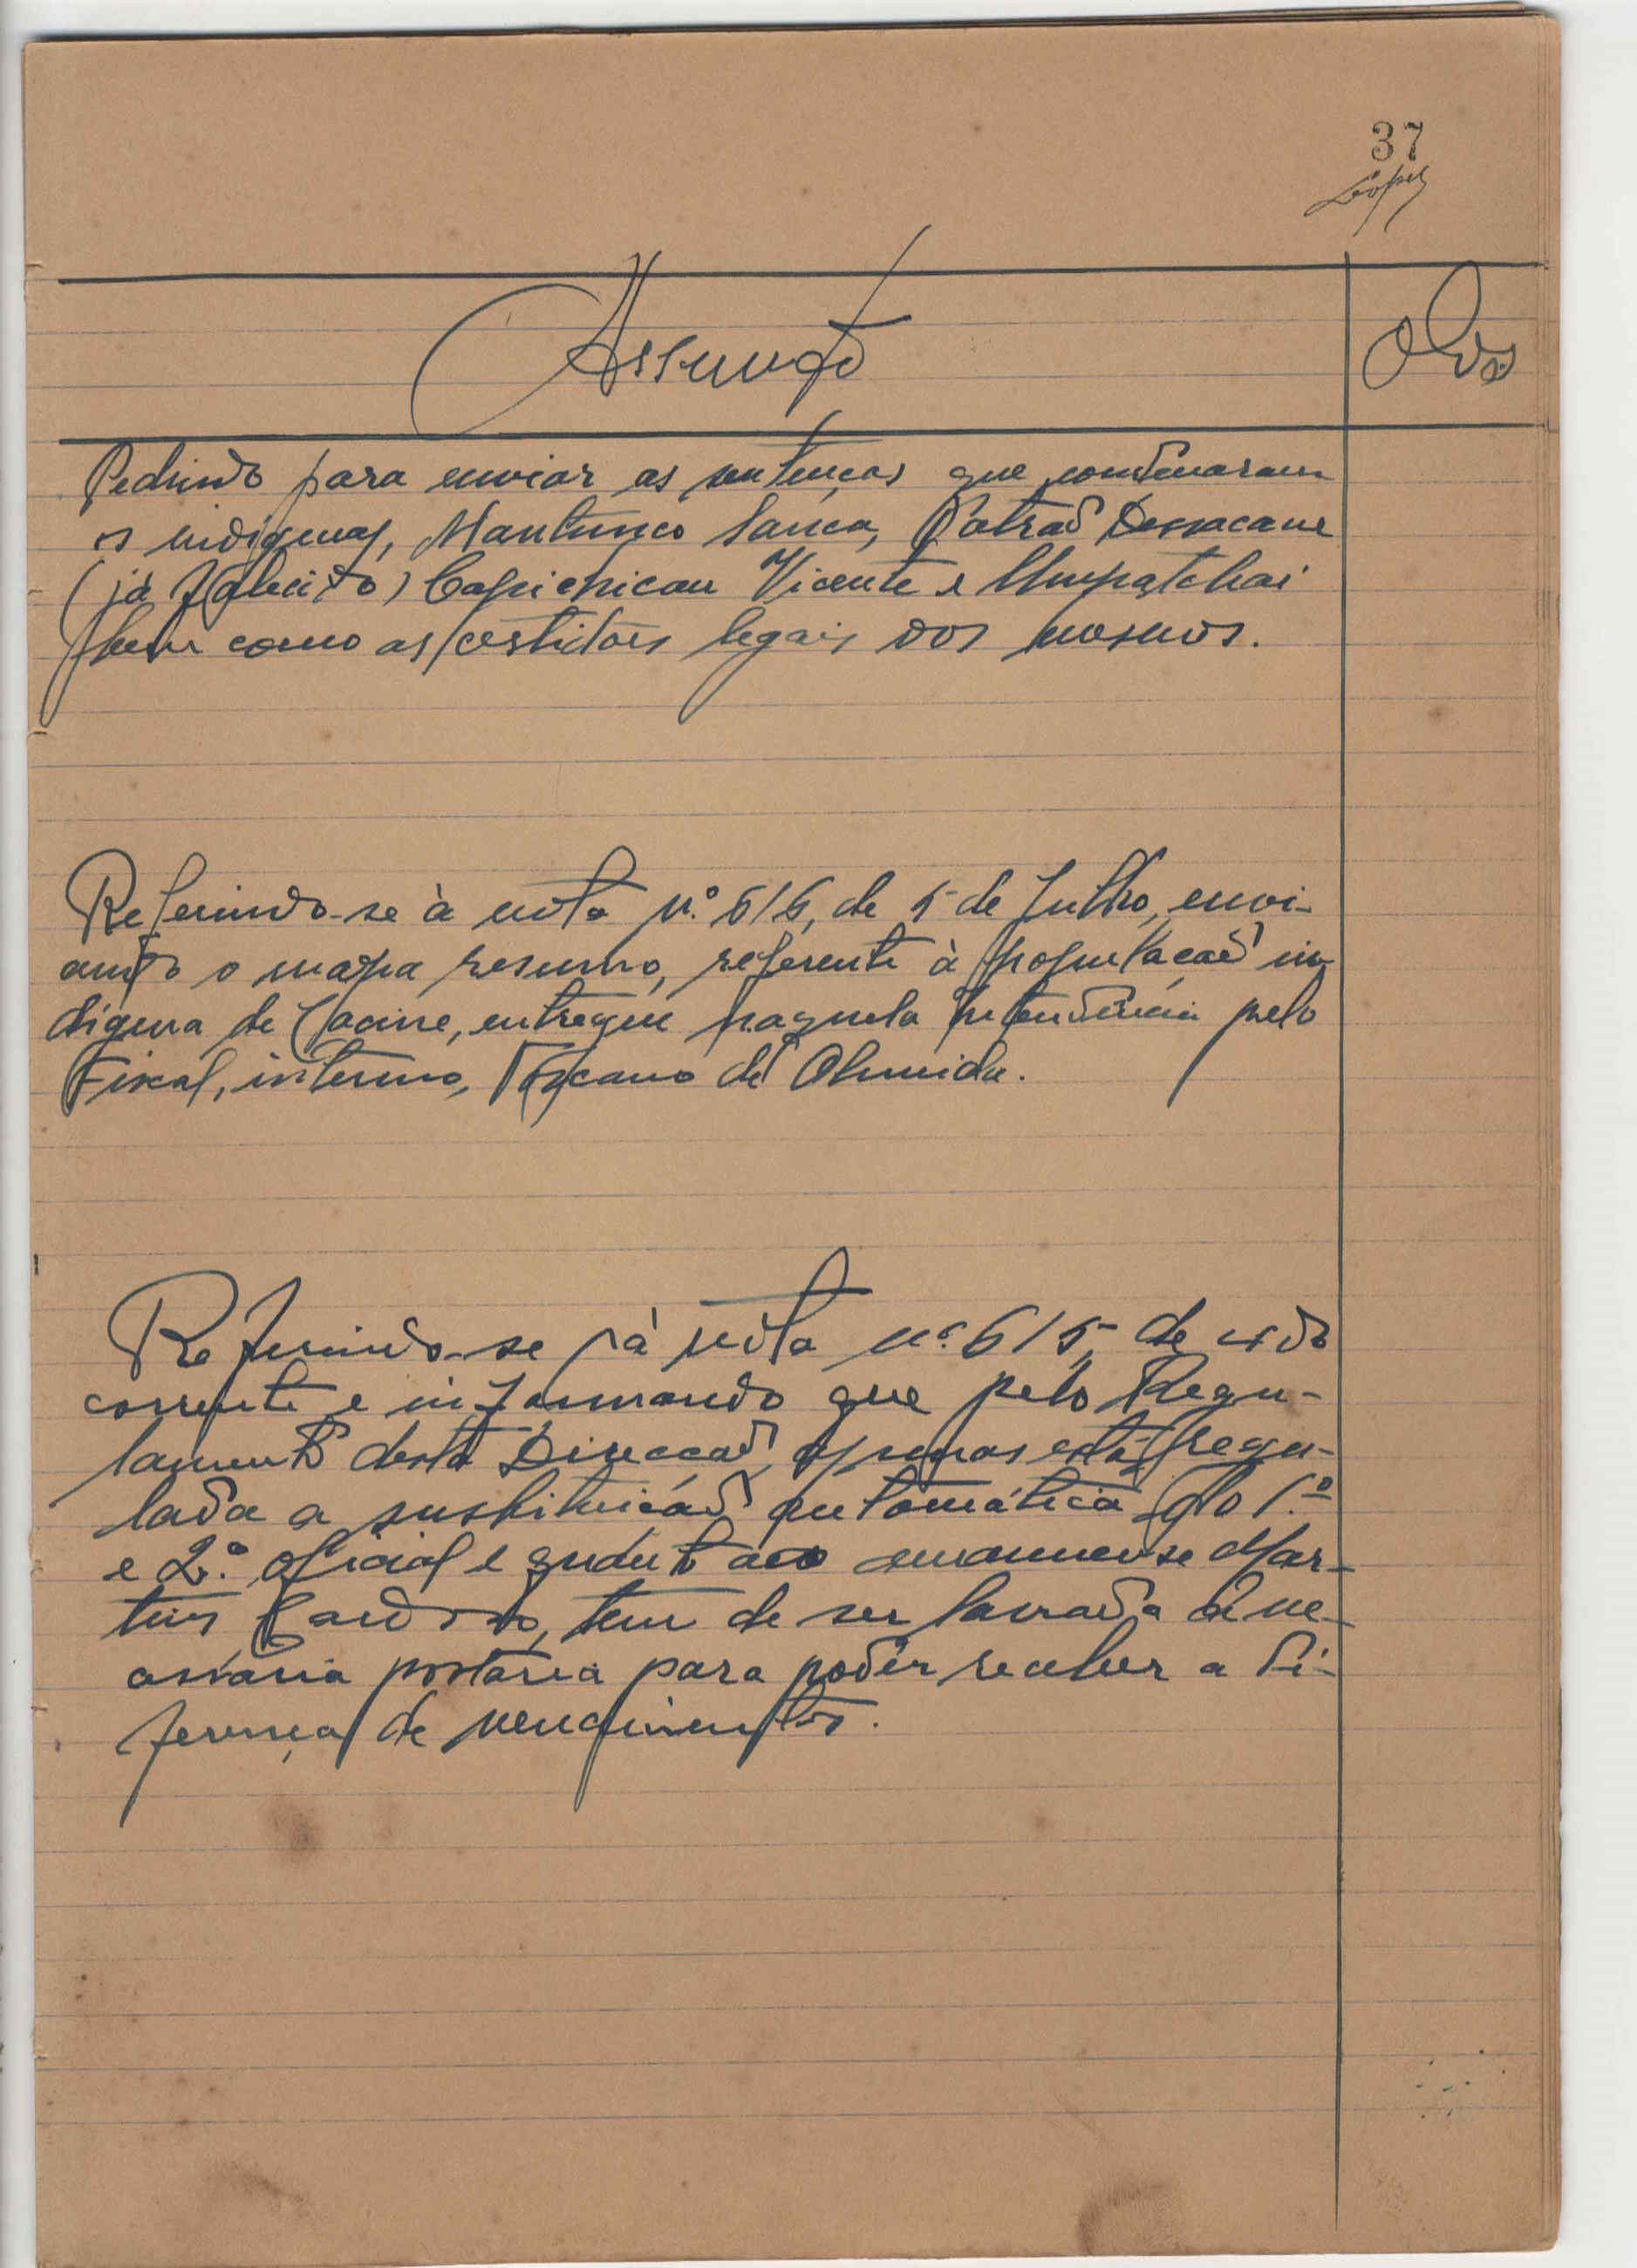 37
Lopes
Assunto
Obs
Pedindo para enviar as sentenças que condenaram
os indigenas, Mantunco Sanca, Patrão Dessacane
(já falecido) Capichicau Vicente e Umpatchai
bem como as certidões legais dos mesmos.
Referindo-se à nota n.º 616, de 5 de Julho, envi-
ando o mapa resumo, referente à população in-
digena de Cacine, entregue naquela Intendência pelo
Fiscal, interino, Toscano de Almeida.
Referindo-se à nota n.º 615, de 4 do
corrente e informando que pelo Regu-
lamento desta Direcção, apenas está regu-
lada a substituição automática do 1.º
e 2.º oficial e quanto ao amanuense Mar-
tins Cardoso, tem de ser lavrada a ne-
assária portaria para poder receber a di-
ferença de vencimentos.